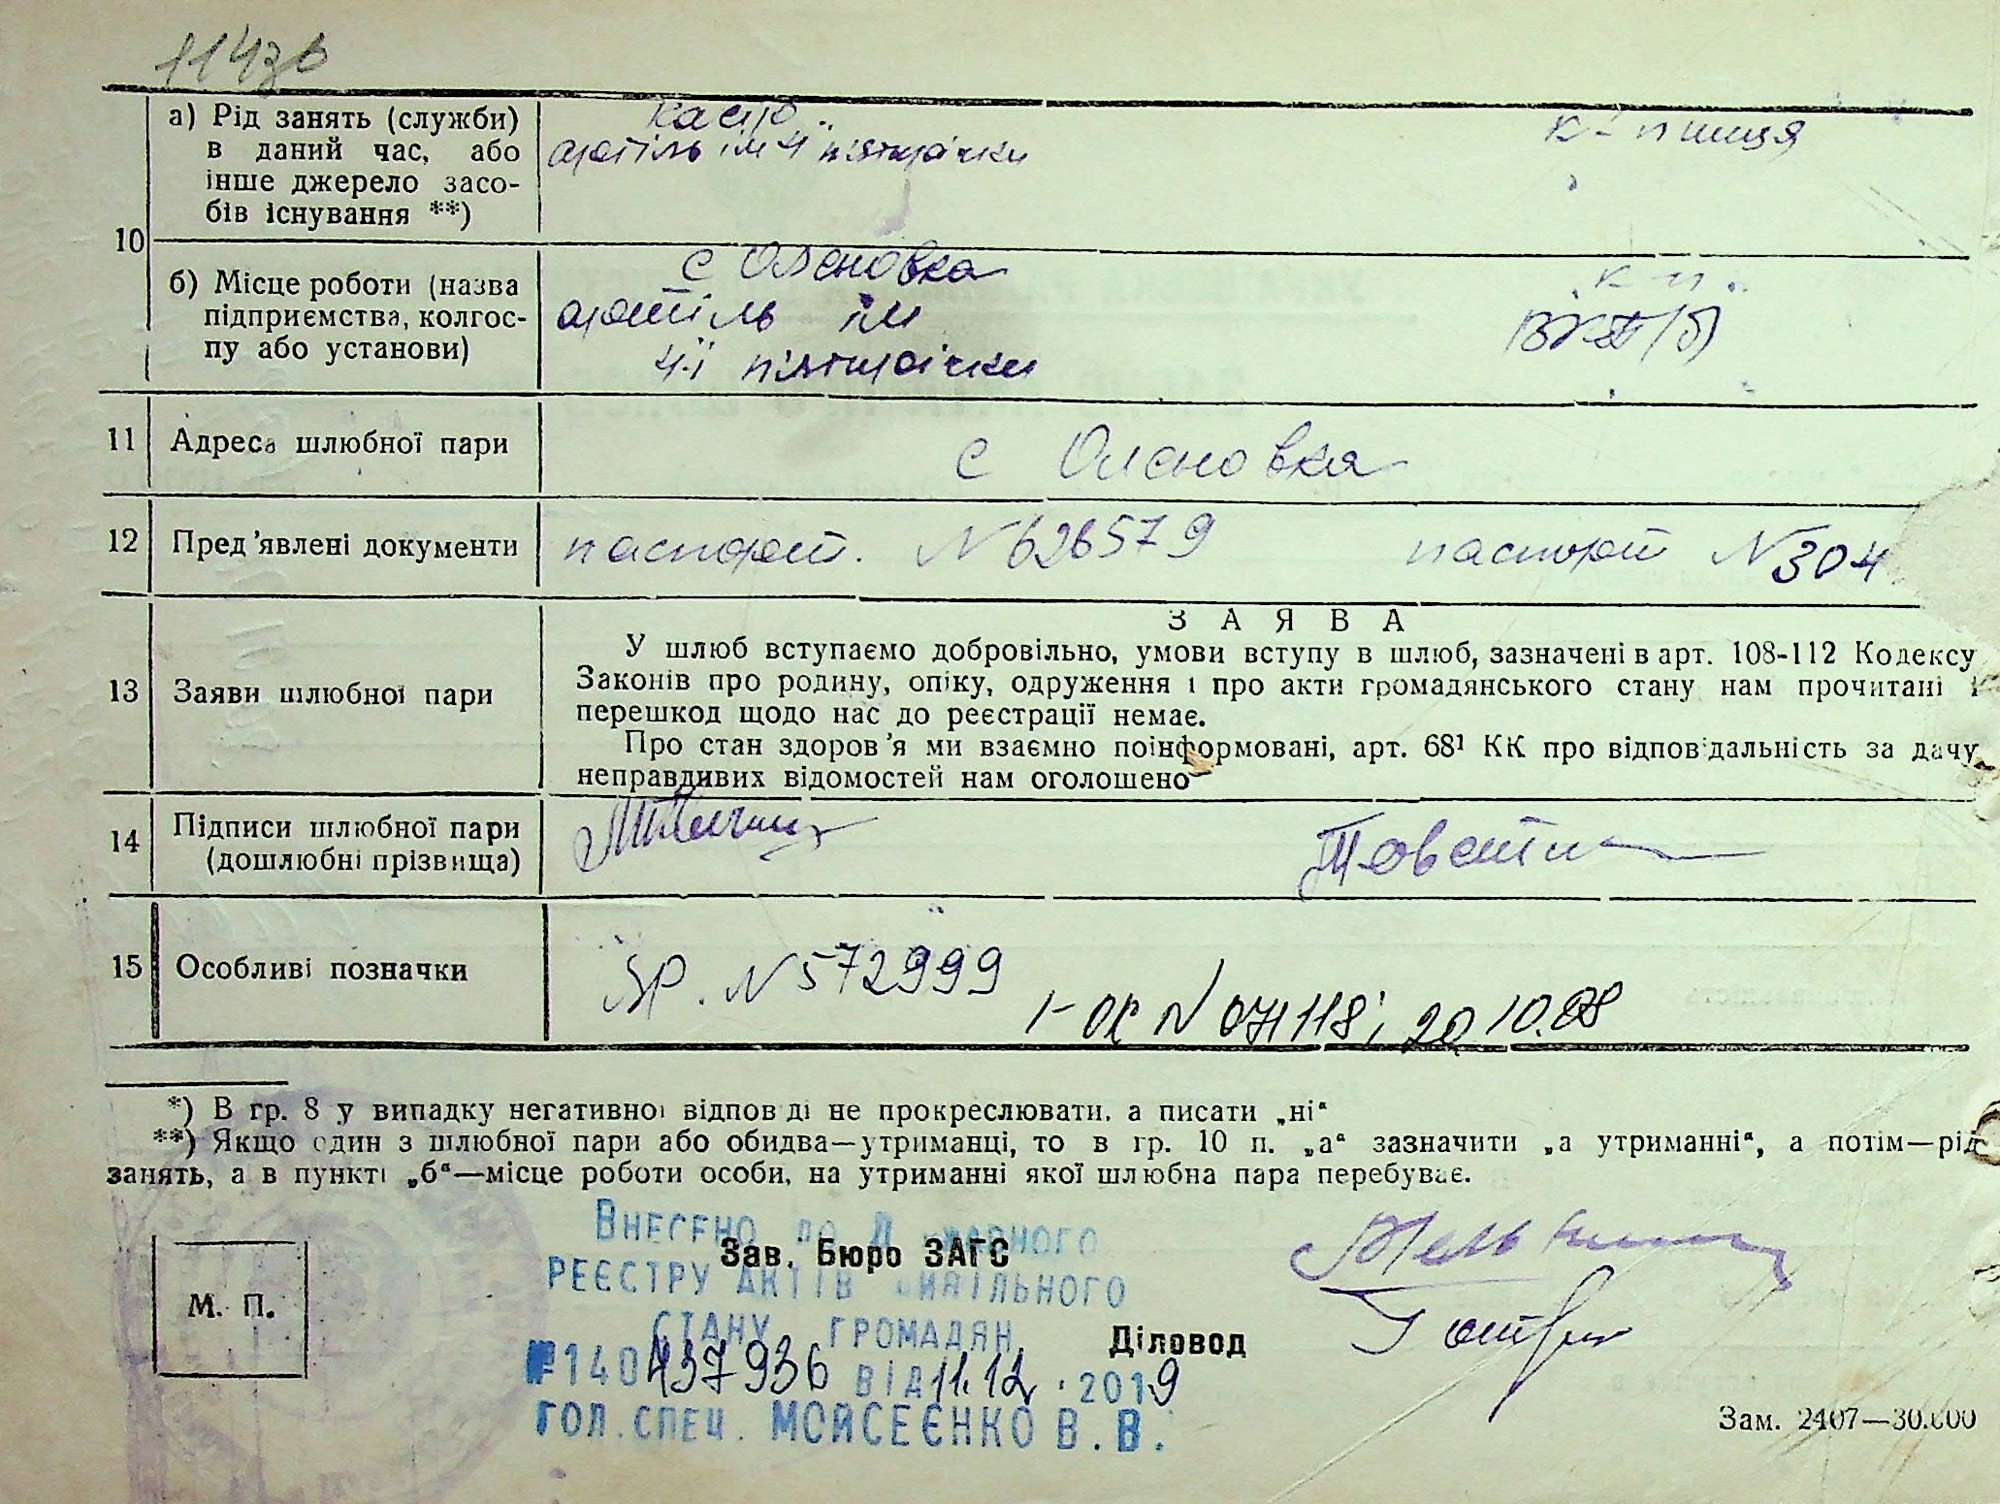 10
а) Рід занять (служби)
в даний час, або
інше джерело засо-
бів існування **)
артіль ім 4ї п'ятирічки
б) Місце роботи (назва
підприємства, колгос-
пу або установи)
с Оленовка
артіль ім
4-ї п'ятирічки
11 Адреса шлюбної пари
с Оленовка
12 Пред'явлені документи
паспорт. N 626579
паспорт N 304
13 Заяви шлюбної пари
ЗАЯВА
У шлюб вступаємо добровільно, умови вступу в шлюб, зазначені в арт. 108-112 Кодексу
Законів про родину, опіку, одруження і про акти громадянського стану нам прочитані і
перешкод щодо нас до реєстрації немає.
Про стан здоров'я ми взаємно поінформовані, арт. 68¹ КК про відповідальність за дачу
неправдивих відомостей нам оголошено
14 Підписи шлюбної пари
(дошлюбні прізвища)
15 Особливі позначки
N 572999
I-ОК N 071118, 20.10.88
*) В гр. 8 у випадку негативної відповіді не прокреслювати, а писати „ні“
**) Якщо один з шлюбної пари або обидва—утриманці, то в гр. 10 п. „а“ зазначити „а утриманні“, а потім—рід
занять, а в пункті „б“—місце роботи особи, на утриманні якої шлюбна пара перебуває.
М. П.
Зав. Бюро ЗАГС
Діловод
Внесено до Державного
реєстру актів цивільного
стану громадян
№140437936 від 11.12.2019
гол. спец. Мойсеєнко В. В.
Зам. 2407—30.000